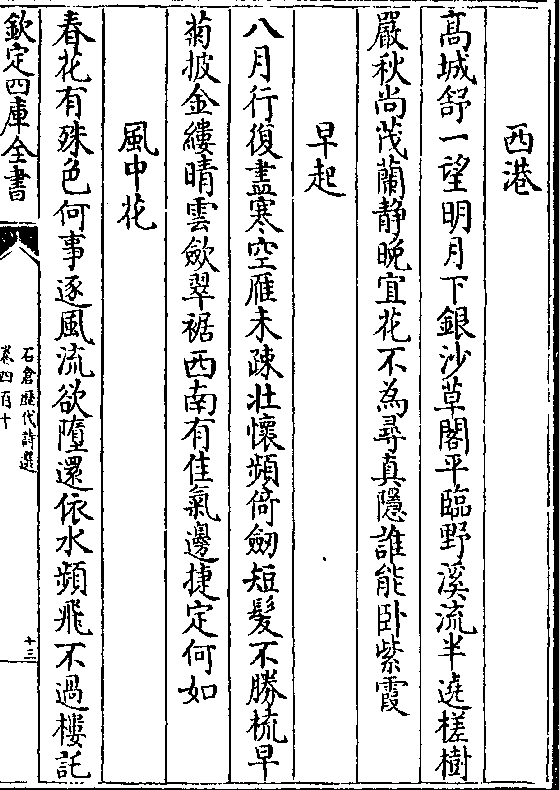 西港
髙城舒一望明月下銀沙草閣平臨野溪流半遶槎樹
嚴秋尚茂蘭静晚宜花不為尋真隱誰能卧紫霞
早起
八月行復盡寒空雁未疎壮懷頻倚劒短髮不勝梳早
菊披金縷晴雲歛翠裾西南有佳氣邊捷定何如
風中花
春花有殊色何事逐風流欲墮還依水頻飛不過樓託
欽定四庫全書
石倉歷代詩選
卷四百十
十三